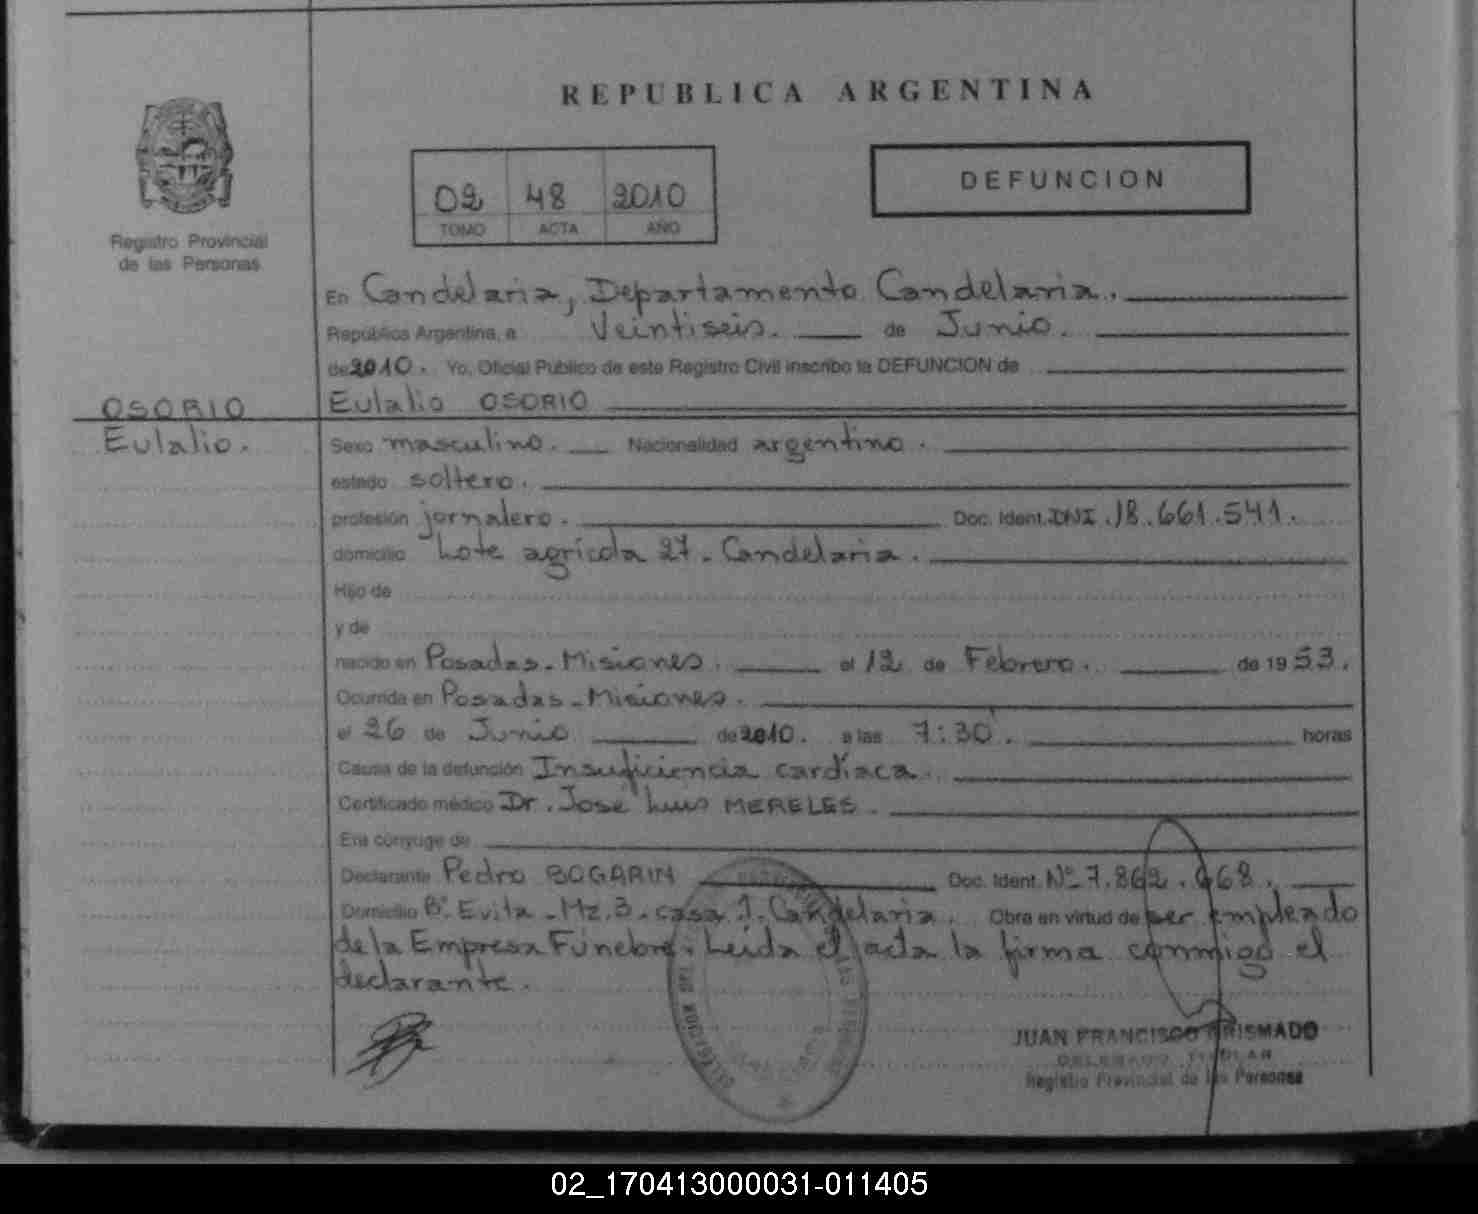 REPUBLICA ARGENTINA
02 48 2010
TOMO ACTA AÑO
DEFUNCION
Registro Provincial
de las Personas
En Candelaria, Departamento Candelaria.
República Argentina, a Veintiseis. de Junio.
de 2010. Yo, Oficial Público de este Registro Civil inscribo la DEFUNCION de
Eulalio OSORIO
OSORIO
Eulalio.
Sexo masculino. Nacionalidad argentino.
estado soltero.
profesión jornalero. Doc. Ident. DNI. 18.661.541.
domicilio Lote agrícola 27. Candelaria.
Hijo de
y de
nacido en Posadas-Misiones. el 12 de Febrero. de 1953.
Ocurrida en Posadas-Misiones.
el 26 de Junio de 2010. a las 7:30. horas
Causa de la defunción Insuficiencia cardíaca.
Certificado médico Dr. José Luis MERELES.
Era cónyuge de
Declarante Pedro BOGARIN Doc. Ident. Nº 7.862.668.
Domicilio Bº Evita-Mz.3.casa 1.Candelaria. Obra en virtud de ser empleado
de la Empresa Fúnebre. Leida el acta la firma conmigo el
declarante.
JUAN FRANCISCO BRISMADO
DELEGADO TITULAR
Registro Provincial de las Personas
DELEGACION
02_170413000031-011405